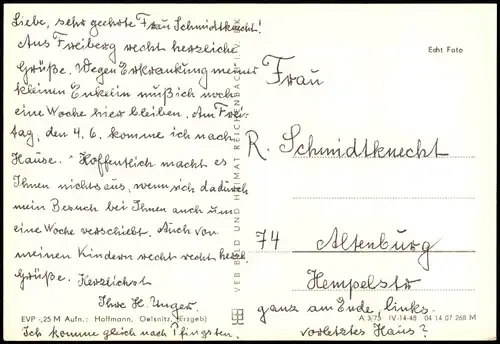 Liebe, sehr geehrte Frau Schmidtknecht!
Aus Freiberg recht herzliche
Grüße. Wegen Erkrankung meiner
kleinen Enkelin muß ich noch
eine Woche hier bleiben. Am Frei-
tag, den 4. 6. komme ich nach
Hause. Hoffentlich macht es
Ihnen nichts aus, wenn sich dadurch
mein Besuch bei Ihnen auch um
eine Woche verschiebt. Auch von
meinen Kindern recht recht herzl
Grüße. Herzlichst
Ihre H. Unger.
EVP -,25 M Aufn.: Hoffmann, Oelsnitz, (Erzgeb)
Ich komme gleich nach Pfingsten.
VEB BILD UND HEIMAT REICHENBACH I. V.
Echt Foto
Frau
R. Schmidtknecht
74 Altenburg
Hempelstr
ganz am Ende, links.
A 3/75 IV-14-48 04 14 07 268 M
vorletztes Haus?